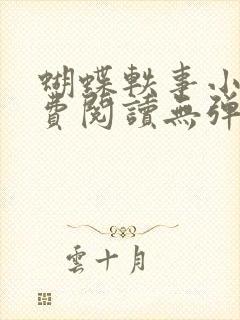 蝴蝶軼事小
費閱讀無彈
雲十月